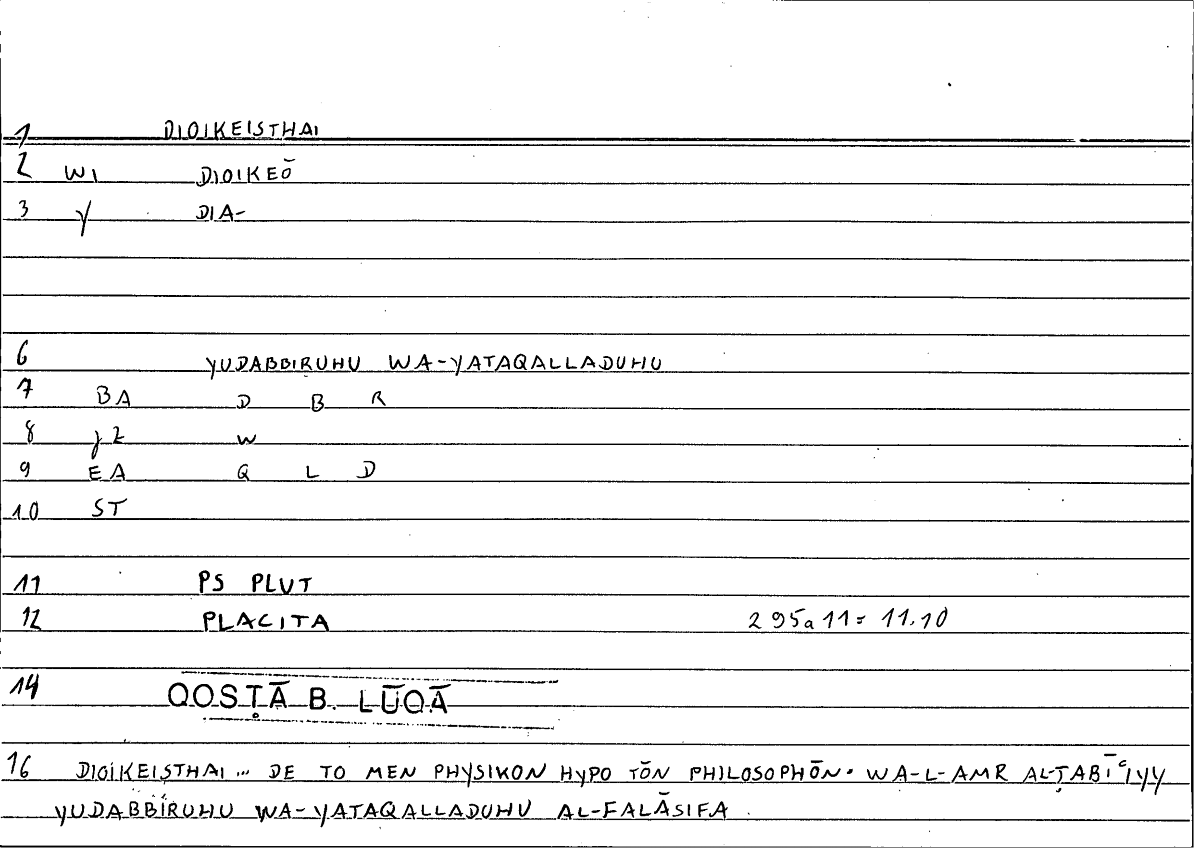 1 DIOIKEISTHAI
2 WI DIOIKEŌ
3 Y DIA-
6 YUDABBIRUHU WA-YATAQALLADUHU
7 BA D B R
8 W
9 EA Q L D
10 ST
11 PS PLUT
12 PLACITA 295a11= 11.10
14 QOSṬĀ B. LŪQĀ
16 DIOIKEISTHAI... DE TO MEN PHYSIKON HYPO TŌN PHILOSOPHŌN. WA-L-AMR AL-ṬABĪʿIYY
YUDABBIRUHU WA-YATAQALLADUHU AL-FALĀSIFA.